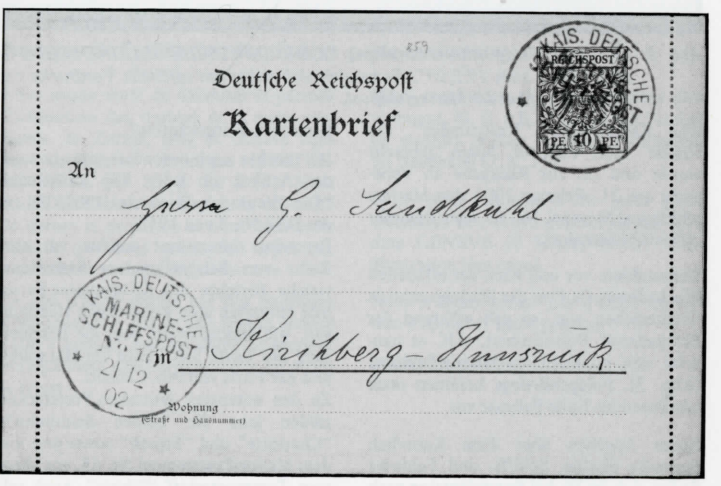 859
KAIS. DEUTSCHE
REICHSPOST
10 PF.
Deutsche Reichspost
Kartenbrief
An
Herrn G. Sandkuhl
KAIS. DEUTSCHE
MARINE-
SCHIFFSPOST
No 10
21 12
02
in Kirchberg-Hunsrück
Wohnung
(Straße und Hausnummer)